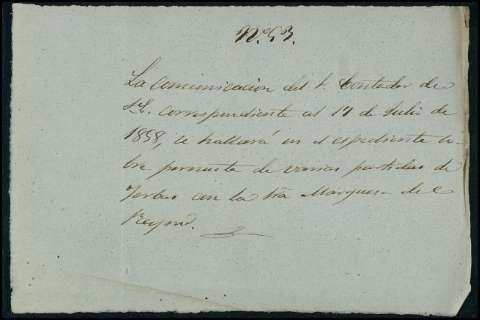 Nº 53.
La comunicacion del S. Contador de
S.E. correspondiente al 17 de Julio de
1858, se hallará en el espediente so-
bre permuta de varias partidas de
Yerbas con la Sra Marquesa de